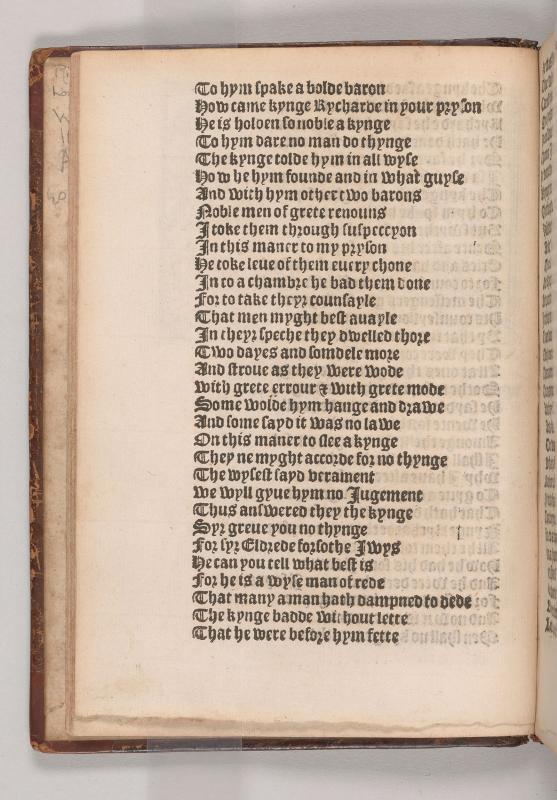 To hym spake a bolde baron
How came kynge Rycharde in your pryson
He is holden so noble a kynge
To hym dare no man do thynge
The kynge tolde hym in all wyse
How he hym founde and in what guyse
And with hym other two barons
Noble men of grete renouns
I toke them through suspeccyon
In this maner to my pryson
He toke leue of them euery chone
In to a chambre he bad them done
For to take theyr counsayle
That men myght best auayle
In theyr speche they dwelled thore
Two dayes and somdele more
And stroue as they were wode
With grete errour & with grete mode
Some wolde hym hange and drawe
And some sayd it was no lawe
On this maner to slee a kynge
They ne myght accorde for no thynge
The wysest sayd verament
We wyll gyue hym no Jugement
Thus answered they the kynge
Syr greue you no thynge
For syr Eldrede forsothe Iwys
He can you tell what best is
For he is a wyse man of rede
That many a man hath dampned to dede
The kynge badde without lette
That he were before hym fette